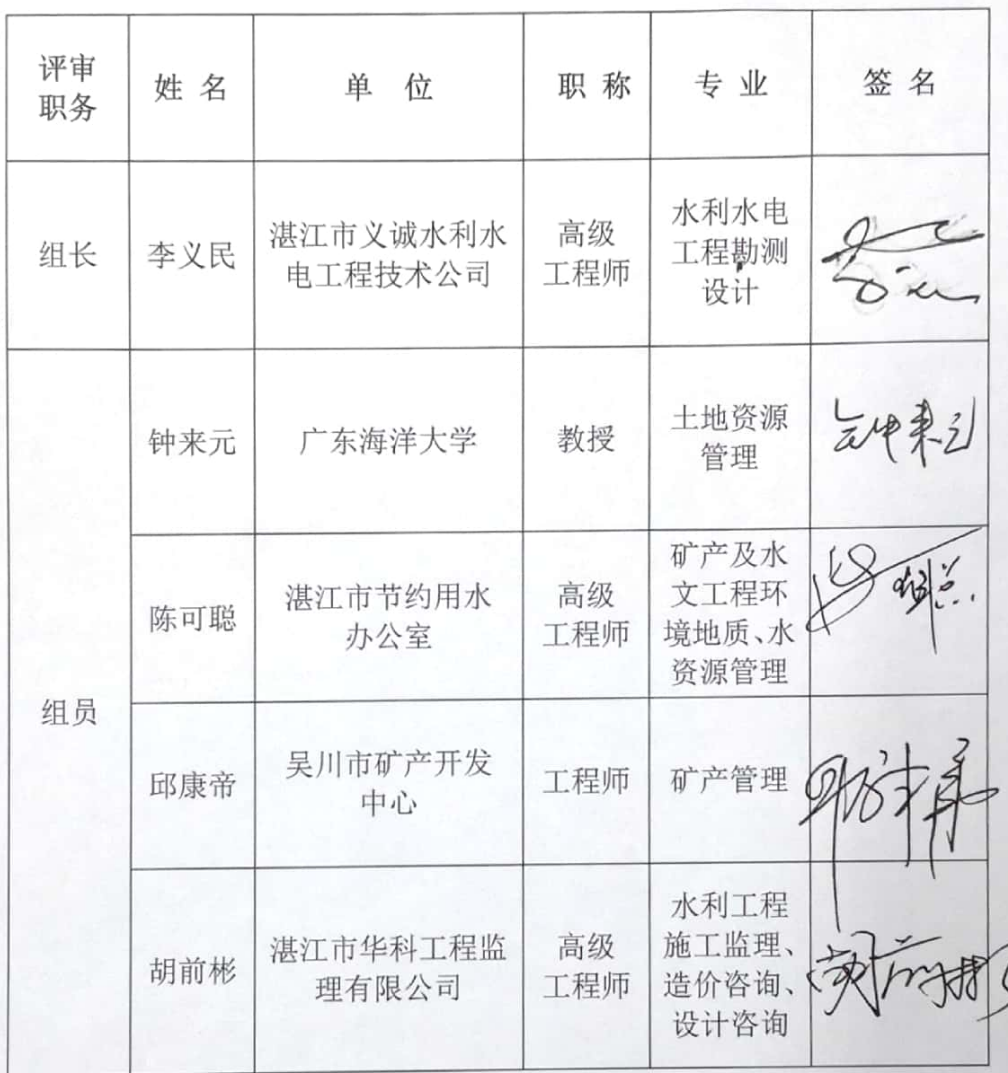 评审
职务
姓名
单位
职称
专业
签名
组长
李义民
湛江市义诚水利水
电工程技术公司
高级
工程师
水利水电
工程勘测
设计
组员
钟来元
广东海洋大学
教授
土地资源
管理
钟来元
陈可聪
湛江市节约用水
办公室
高级
工程师
矿产及水
文工程环
境地质、水
资源管理
邱康帝
吴川市矿产开发
中心
工程师
矿产管理
胡前彬
湛江市华科工程监
理有限公司
高级
工程师
水利工程
施工监理、
造价咨询、
设计咨询
胡前彬